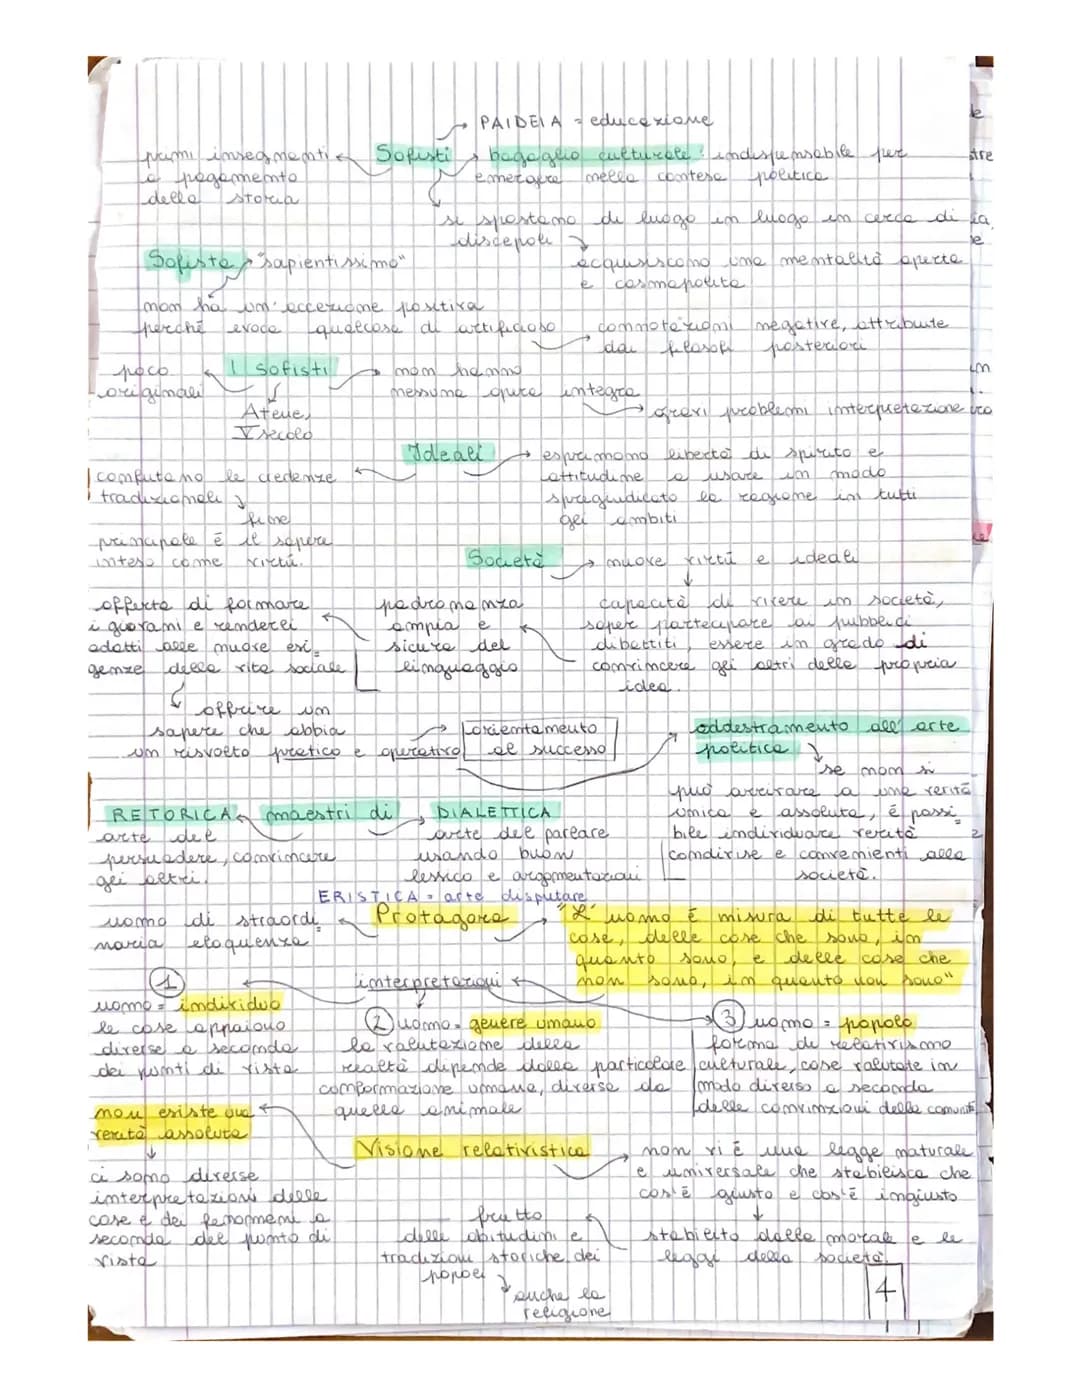 PAIDEIA = educazione
primi insegnanti
a pagamento
della storia
Sofisti
bagaglio culturale: indispensabile per
emergere nella contesa politica
si spostano di luogo in luogo in cerca di
discepoli
acquisiscono una mentalità aperta
e cosmopolita
Sofista "sapientissimo"
non ha un'accezione positiva
perché evoca qualcosa di artificioso
connotazioni negative, attribuite
dai filosofi posteriori
poco
originali
I sofisti
non hanno
nessuna opera integra
gravi problemi interpretazione
Atene,
V secolo
Ideali
esprimono libertà di spirito e
attitudine a usare in modo
spregiudicato la ragione in tutti
gli ambiti
confutano le credenze
tradizionali
fine
principale è il sapere
inteso come virtù.
Società
nuove virtù e ideali
offerta di formare
i giovani e renderli
adatti alle nuove esi_
genze della vita sociale
padronanza
ampia e
sicura del
linguaggio
capacità di vivere in società,
saper partecipare ai pubblici
dibattiti, essere in grado di
convincere gli altri della propria
idea.
offrire un
sapere che abbia
un risvolto pratico e operativo
orientamento
al successo
addestramento all'arte
politica
se non si
può arrivare a una verità
unica e assoluta, è possi_
bile individuare verità
condivise e convenienti alla
società.
RETORICA maestri di DIALETTICA
arte del
persuadere, convincere
gli altri.
arte del parlare
usando buon
lessico e argomentazioni
ERISTICA = arte disputare
uomo di straordi_
naria eloquenza
Protagora
"L'uomo è misura di tutte le
cose, delle cose che sono, in
quanto sono, e delle cose che
non sono, in quanto non sono"
interpretazioni
1
uomo = individuo
le cose appaiono
diverse a seconda
dei punti di vista
2 uomo = genere umano
la valutazione della
realtà dipende dalla particolare
conformazione umana, diversa da
quella animale
3 uomo = popolo
forma di relativismo
culturale, cose valutate in
modo diverso a seconda
delle convinzioni delle comunità
non esiste una
verità assoluta
ci sono diverse
interpretazioni delle
cose e dei fenomeni a
seconda del punto di
vista
Visione relativistica
non vi è una legge naturale
e universale che stabilisca che
cos'è giusto e cos'è ingiusto
stabilito dalla morale e le
leggi della società
frutto
delle abitudini e
tradizioni storiche dei
popoli
anche la
religione
4